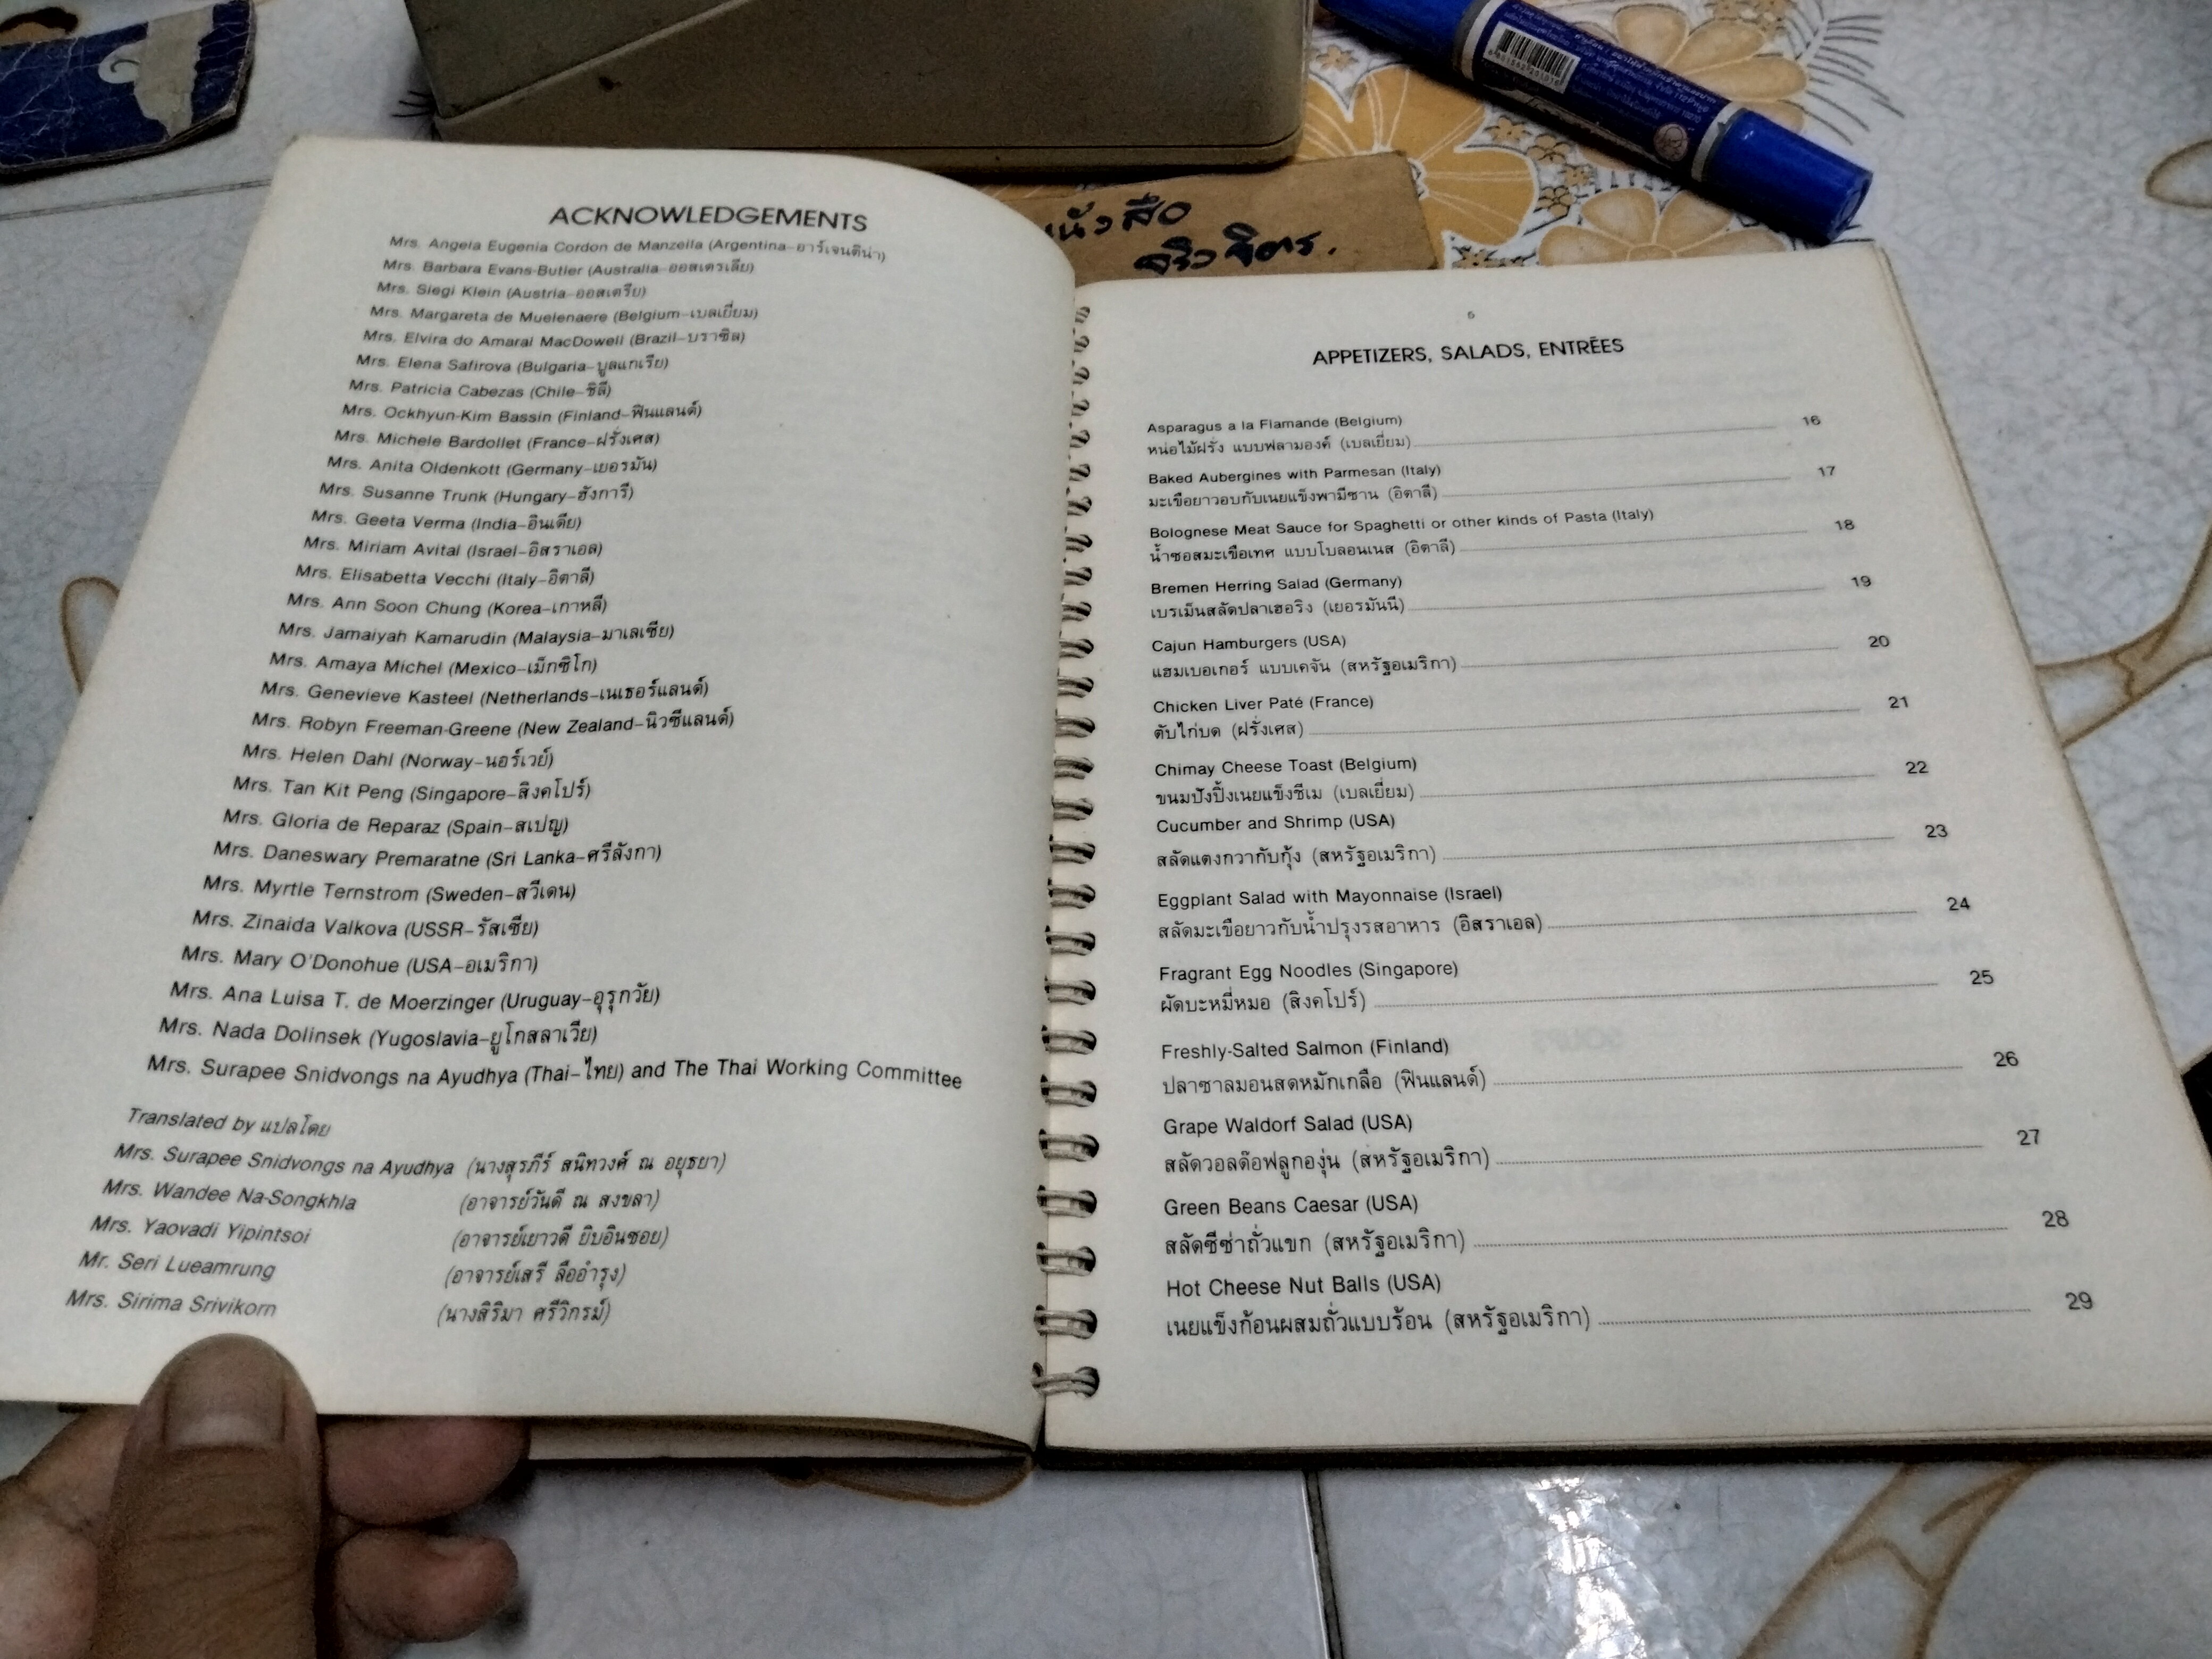 ACKNOWLEDGEMENTS
Mrs. Angela Eugenia Cordon de Manzella (Argentina–อาร์เจนติน่า)
Mrs. Barbara Evans-Butler (Australia–ออสเตรเลีย)
Mrs. Siegi Klein (Austria–ออสเตรีย)
Mrs. Margareta de Muelenaere (Belgium–เบลเยี่ยม)
Mrs. Elvira do Amaral MacDowell (Brazil–บราซิล)
Mrs. Elena Safirova (Bulgaria–บูลแกเรีย)
Mrs. Patricia Cabezas (Chile–ชิลี)
Mrs. Ockhyun-Kim Bassin (Finland–ฟินแลนด์)
Mrs. Michele Bardollet (France–ฝรั่งเศส)
Mrs. Anita Oldenkott (Germany–เยอรมัน)
Mrs. Susanne Trunk (Hungary–ฮังการี)
Mrs. Geeta Verma (India–อินเดีย)
Mrs. Miriam Avital (Israel–อิสราเอล)
Mrs. Elisabetta Vecchi (Italy–อิตาลี)
Mrs. Ann Soon Chung (Korea–เกาหลี)
Mrs. Jamaiyah Kamarudin (Malaysia–มาเลเซีย)
Mrs. Amaya Michel (Mexico–เม็กซิโก)
Mrs. Genevieve Kasteel (Netherlands–เนเธอร์แลนด์)
Mrs. Robyn Freeman-Greene (New Zealand–นิวซีแลนด์)
Mrs. Helen Dahl (Norway–นอร์เวย์)
Mrs. Tan Kit Peng (Singapore–สิงคโปร์)
Mrs. Gloria de Reparaz (Spain–สเปญ)
Mrs. Daneswary Premaratne (Sri Lanka–ศรีลังกา)
Mrs. Myrtle Ternstrom (Sweden–สวีเดน)
Mrs. Zinaida Valkova (USSR–รัสเซีย)
Mrs. Mary O'Donohue (USA–อเมริกา)
Mrs. Ana Luisa T. de Moerzinger (Uruguay–อุรุกวัย)
Mrs. Nada Dolinsek (Yugoslavia–ยูโกสลาเวีย)
Mrs. Surapee Snidvongs na Ayudhya (Thai–ไทย) and The Thai Working Committee
Translated by แปลโดย
Mrs. Surapee Snidvongs na Ayudhya (นางสุรภีร์ สนิทวงศ์ ณ อยุธยา)
Mrs. Wandee Na-Songkhla (อาจารย์วันดี ณ สงขลา)
Mrs. Yaovadi Yipintsoi (อาจารย์เยาวดี ยิบอินซอย)
Mr. Seri Lueamrung (อาจารย์เสรี ลืออำรุง)
Mrs. Sirima Srivikorn (นางสิริมา ศรีวิกรม์)
หนังสือ
6
APPETIZERS, SALADS, ENTRÉES
Asparagus a la Flamande (Belgium) 16
หน่อไม้ฝรั่ง แบบฟลามองค์ (เบลเยี่ยม)
Baked Aubergines with Parmesan (Italy) 17
มะเขือยาวอบกับเนยแข็งพามีซาน (อิตาลี)
Bolognese Meat Sauce for Spaghetti or other kinds of Pasta (Italy) 18
น้ำซอสมะเขือเทศ แบบโบลอนเนส (อิตาลี)
Bremen Herring Salad (Germany) 19
เบรเม็นสลัดปลาเฮอริง (เยอรมันนี)
Cajun Hamburgers (USA) 20
แฮมเบอเกอร์ แบบเคจัน (สหรัฐอเมริกา)
Chicken Liver Paté (France) 21
ตับไก่บด (ฝรั่งเศส)
Chimay Cheese Toast (Belgium) 22
ขนมปังปิ้งเนยแข็งชีเม (เบลเยี่ยม)
Cucumber and Shrimp (USA) 23
สลัดแตงกวากับกุ้ง (สหรัฐอเมริกา)
Eggplant Salad with Mayonnaise (Israel) 24
สลัดมะเขือยาวกับน้ำปรุงรสอาหาร (อิสราเอล)
Fragrant Egg Noodles (Singapore) 25
ผัดบะหมี่หมอ (สิงคโปร์)
Freshly-Salted Salmon (Finland) 26
ปลาซาลมอนสดหมักเกลือ (ฟินแลนด์)
Grape Waldorf Salad (USA) 27
สลัดวอลด๊อฟลูกองุ่น (สหรัฐอเมริกา)
Green Beans Caesar (USA) 28
สลัดซีซ่าถั่วแขก (สหรัฐอเมริกา)
Hot Cheese Nut Balls (USA) 29
เนยแข็งก้อนผสมถั่วแบบร้อน (สหรัฐอเมริกา)